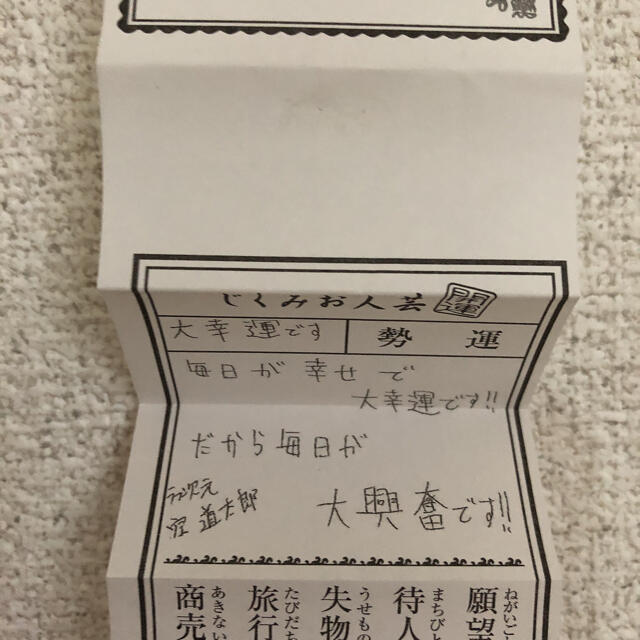 開運
芸人おみくじ
運勢
大幸運です
毎日が幸せで
大幸運です!!
だから毎日が
大興奮です!!
次元
道太郎
願望
ねがいご
待人
まちびと
失物
うせもの
旅行
たびだち
商売
あきない